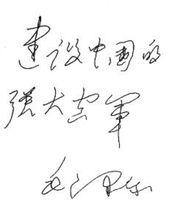 建设中国的
强大空军
毛泽东